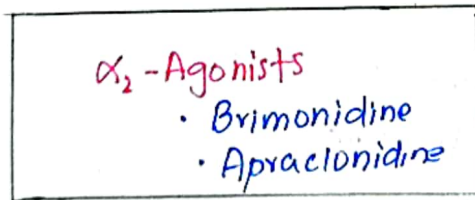 α₂-Agonists
· Brimonidine
· Apraclonidine